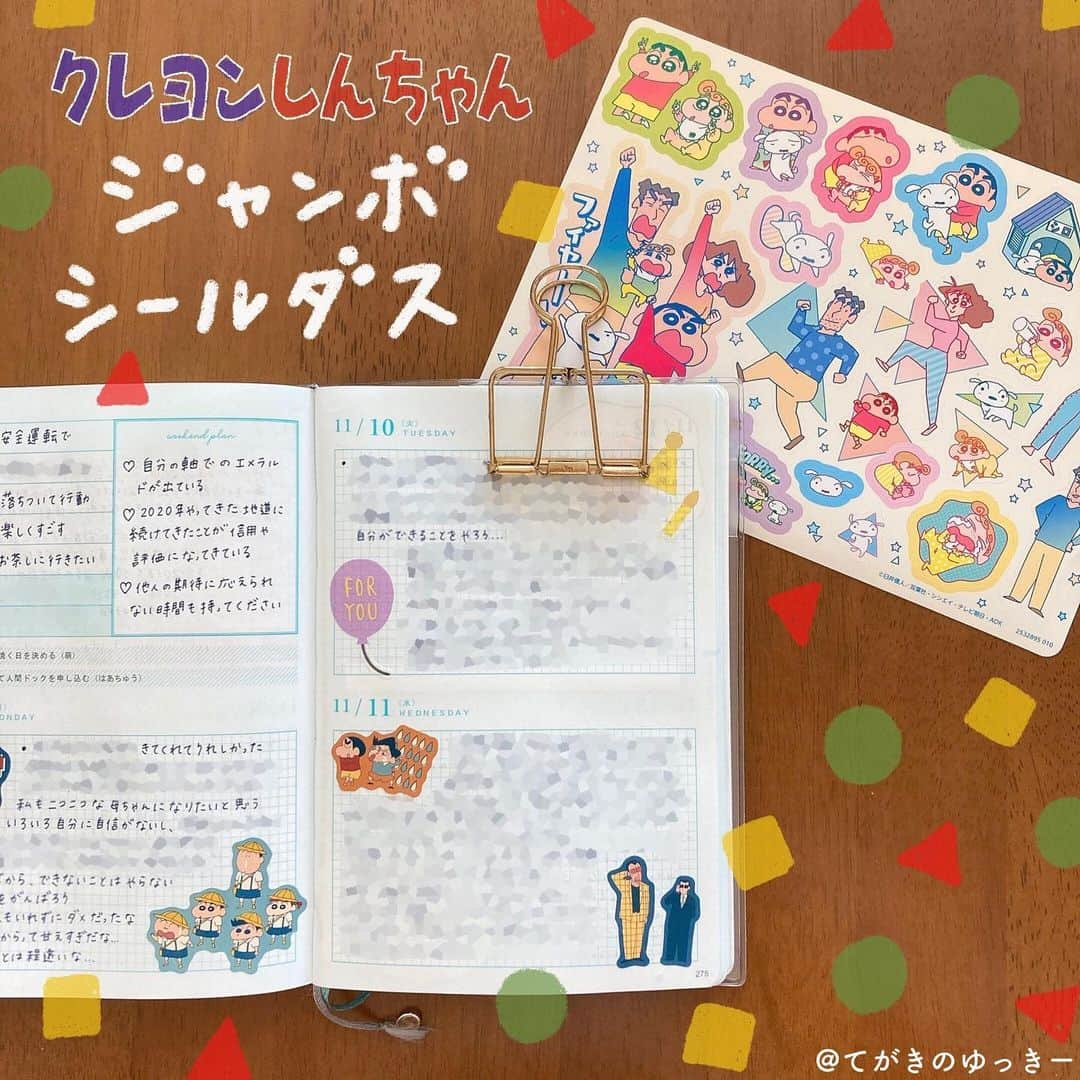 クレヨンしんちゃん
ジャンボ
シールダス
ファイヤー
シロ
©臼井儀人/双葉社・シンエイ・テレビ朝日・ADK
2532895 010
安全運転で
落ちついて行動
楽しくすごす
お茶しに行きたい
weekend plan
♡自分の軸でのエメラル
ドが出ている
♡2020年やってきた地道に
続けてきたことが信用や
評価になってきている
♡他人の期待に応えられ
ない時間も持ってください
焼く日を決める(萌)
で人間ドックを申し込む(はあちゅう)
ONDAY
きてくれてうれしかった
私もニコニコな母ちゃんになりたいと思う
いろいろ自分に自信がないし、
から、できないことはやらない
をがんばろう
もいれずにダメだったな
からって甘えすぎだな…
とは程遠いな…
11/10(火)
TUESDAY
自分ができることをやろう…
FOR
YOU
11/11(水)
WEDNESDAY
275
@てがきのゆっきー